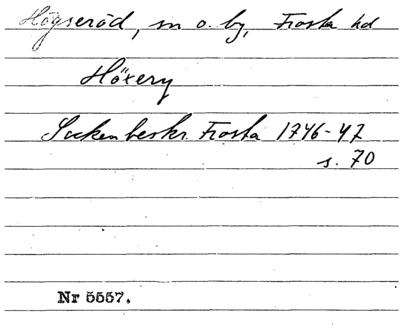 Högseröd, sn o. by, Frosta hd
Höxery
Sockenbeskr. Frosta 1746-47
s. 70
Nr 5557.